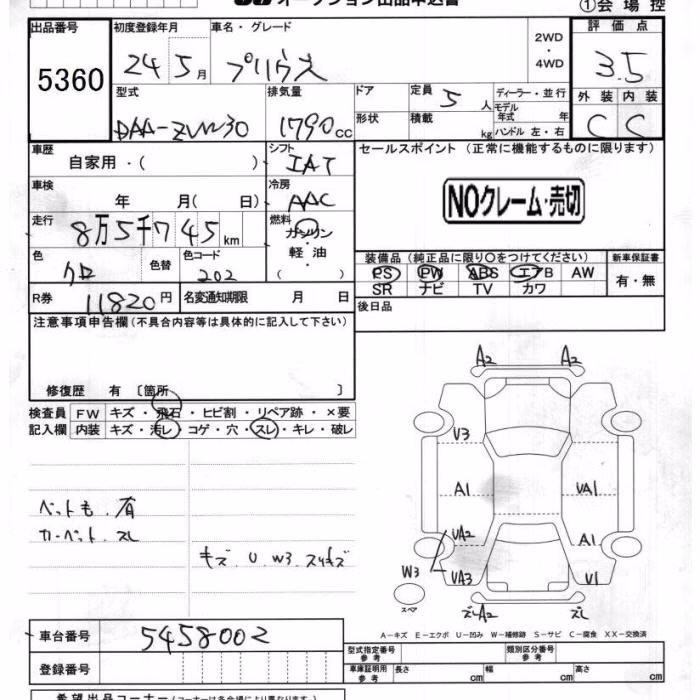 オークション出品申込書
①会場控
出品番号 初度登録年月 車名・グレード 2WD・4WD 評価点
5360 24年5月 プリウス 3.5
型式 排気量 ドア 定員 5人 ディーラー・並行 外装 内装
DAA-ZVW30 1790cc 形状 積載 kg モデル年式 年 ハンドル 左・右 C C
車歴 自家用・( ) シフト IAT セールスポイント (正常に機能するものに限ります)
車検 年 月( 日) 冷房 AAC NOクレーム・売切
走行 8万5千745km 燃料 ガソリン・軽油( )
装備品 (純正品に限り○をつけてください) 新車保証書
色 クロ 色替 色コード 202 PS PW ABS エアB AW 有・無
SR ナビ TV カワ
R券 11820円 名変通知期限 月 日 後日品
注意事項申告欄(不具合内容等は具体的に記入して下さい)
修復歴 有 [箇所 ]
検査員 FW キズ・飛石・ヒビ割・リペア跡・×要
記入欄 内装 キズ・汚レ・コゲ・穴・スレ・キレ・破レ
A2 A2
V3
A1 UA1
UA2 A1
W3 UA3 U1
スペア
ズレA2 ズレ
ペットも.有
カーペット.スレ
キズ.U.W3.スリキズ
A-キズ E-エクボ U-凹み W-補修跡 S-サビ C-腐食 XX-交換済
車台番号 5458002
型式指定番号 参考 類別区分番号 参考
登録番号
車庫証明用 参考 長さ cm 幅 cm 高さ cm
希望出品コーナー